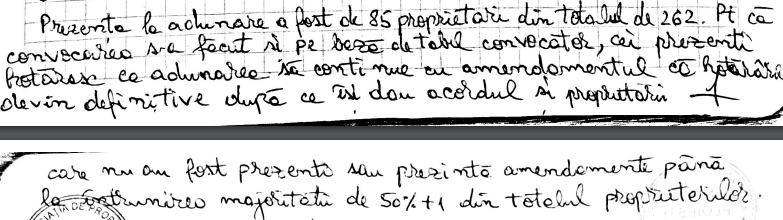 Prezența la adunare a fost de 85 proprietari din totalul de 262. Pt că
convocarea s-a făcut și pe bază de tabel convocator, cei prezenți
hotărăsc ca adunarea să continue cu amendamentul că hotărârile
devin definitive după ce își dau acordul și proprietarii
care nu au fost prezenți sau prezintă amendamente până
la întrunirea majorității de 50%+1 din totalul proprietarilor.